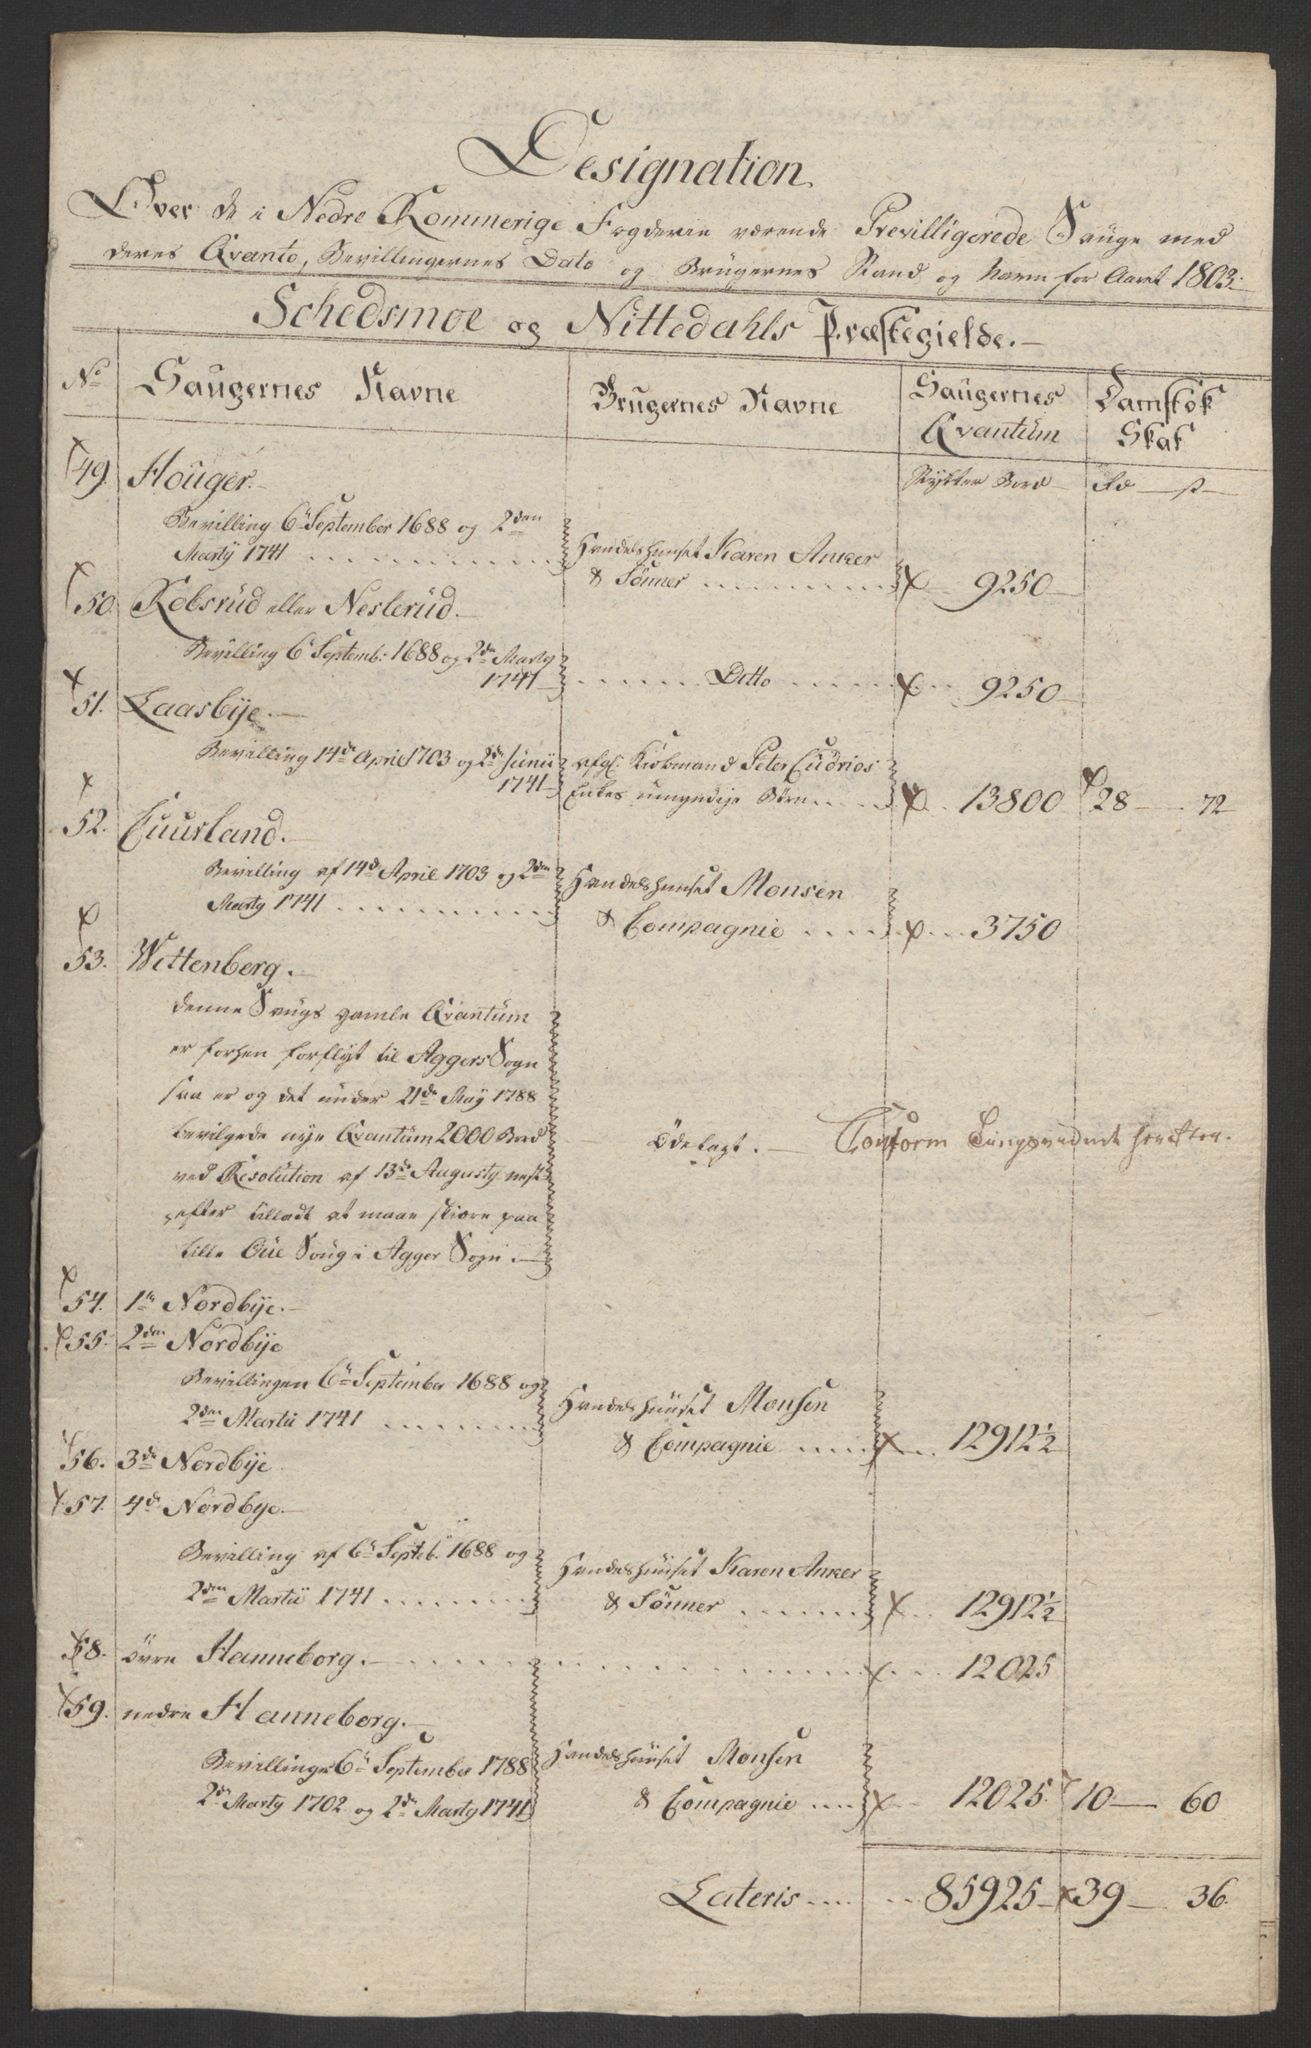 Designation
Over de i Nedre Rommerige Fogderie værende Previlligerede Sauge med
deres Qvanto, Bevillingernes Dato og Brugernes Stand og Navn for Aaret 1803.
Schedsmoe og Nittedahls Præstegielde.
No Saugernes Navne Brugernes Navne Saugernes Qvantum Damstok Skat
Stykker Bord Rd s
49. Houger.
Bevilling 6te September 1688 og 2den
Marty 1741 Handelshuuset Karen Anker
& Sönner 9250
50. Robsrud eller Neslerud.
Bevilling 6te Septemb: 1688 og 2de Marty
1741 Ditto 9250
51. Laasbye.
Bevilling 14de April 1703 og 2de Junii afg. Kiöbmand Peter Cudrios
1741 Enkes umyndige Börn 13800 28 72
52. Cuurland.
Bevilling af 14de April 1703 og 2den Handelshuuset Monsen
Marty 1741 & Compagnie 3750
53. Wittenberg.
denne Saugs gamle Qvantum
er forhen forflÿt til Aggers Sogn
saa er og det under 21de May 1788
bevilgede nye Qvantum 2000 Bord Ödelagt. Conform
ved Resolution af 13de Augusty nest
efter tilladt at maae skiære paa
lille Öue Saug i Agger Sogn.
54. 1te Nordbye.
55. 2den Nordbye
Bevillingen 6te September 1688 og Handelshuuset Monsen
2den Martii 1741 & Compagnie 12912½
56. 3de Nordbye
57. 4de Nordbye.
Bevilling af 6te Septeb. 1688 og Handelshuuset Karen Anker
2den Martii 1741 & Sönner 12912½
58. övre Hanneborg. 12025
59. nedre Hanneborg.
Bevillinger 6te September 1788 Handelshuuset Monsen
2de Marty 1702 og 2de Marty 1741 & Compagnie 12025 10 60
Lateris 85925 39 36.